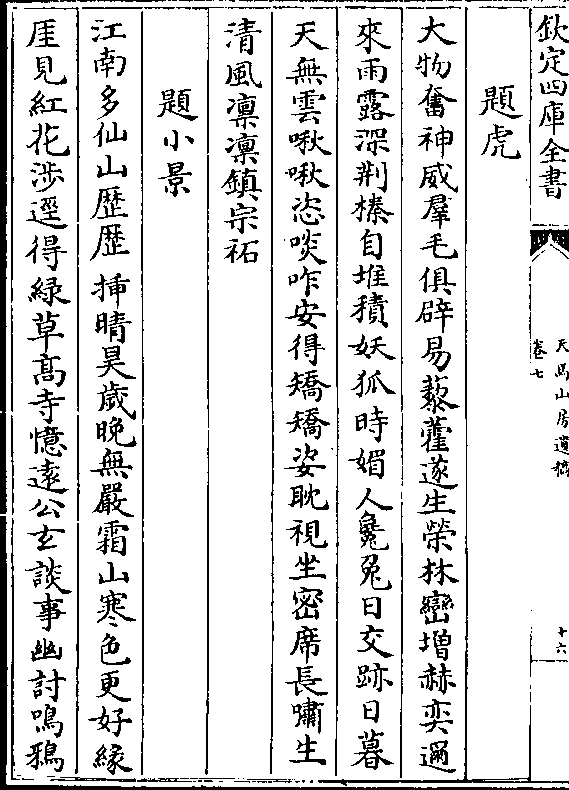 欽定四庫全書
天馬山房遺稿
卷七
十六
題虎
大物奮神威羣毛俱辟易藜藿遂生榮林巒增赫奕邇
來雨露深荆榛自堆積妖狐時媚人毚兔日交跡日暮
天無雲啾啾恣啖咋安得矯矯姿眈視坐密席長嘯生
清風凜凜鎮宗祏
題小景
江南多仙山歴歴揷晴昊歲晚無嚴霜山寒色更好緣
厓見紅花涉逕得緑草高寺憶遠公玄談事幽討鳴鴉